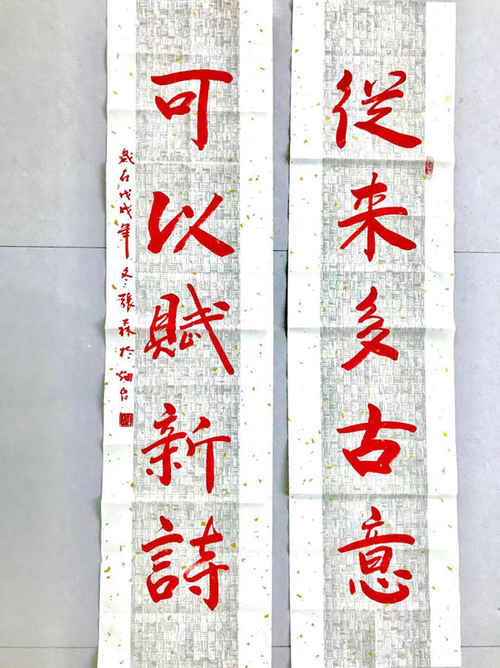 從来多古意
可以賦新詩
歲在戊戌年冬張森於烟台